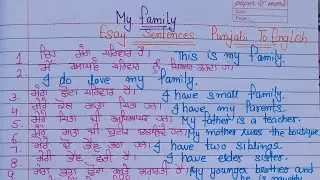 paper & more
My family
Essay Sentences Punjabi To English
1. ਇਹ ਮੇਰਾ ਪਰਿਵਾਰ ਹੈ। This is my family.
2. ਮੈਂ ਪਰਿਵਾਰ ਨੂੰ ਪਿਆਰ
I do love my family.
3. ਮੇਰਾ ਛੋਟਾ ਪਰਿਵਾਰ ਹੈ। I have small family.
4. ਮੇਰੇ ਕੋਲ ਮਾਤਾ ਪਿਤਾ ਹਨ। I have my parents.
5. ਮੇਰੇ ਪਿਤਾ ਜੀ ਅਧਿਆਪਕ ਹਨ। My father is a teacher.
6. ਮੇਰੇ ਮਾਤਾ ਜੀ My mother runs the boutique.
7. ਮੇਰੇ ਭੈਣ ਹਨ। I have two siblings.
8. ਮੇਰੀ ਭੈਣ ਹੈ। I have elder sister.
9. ਮੇਰਾ ਛੋਟਾ My younger brother and
he is naughty